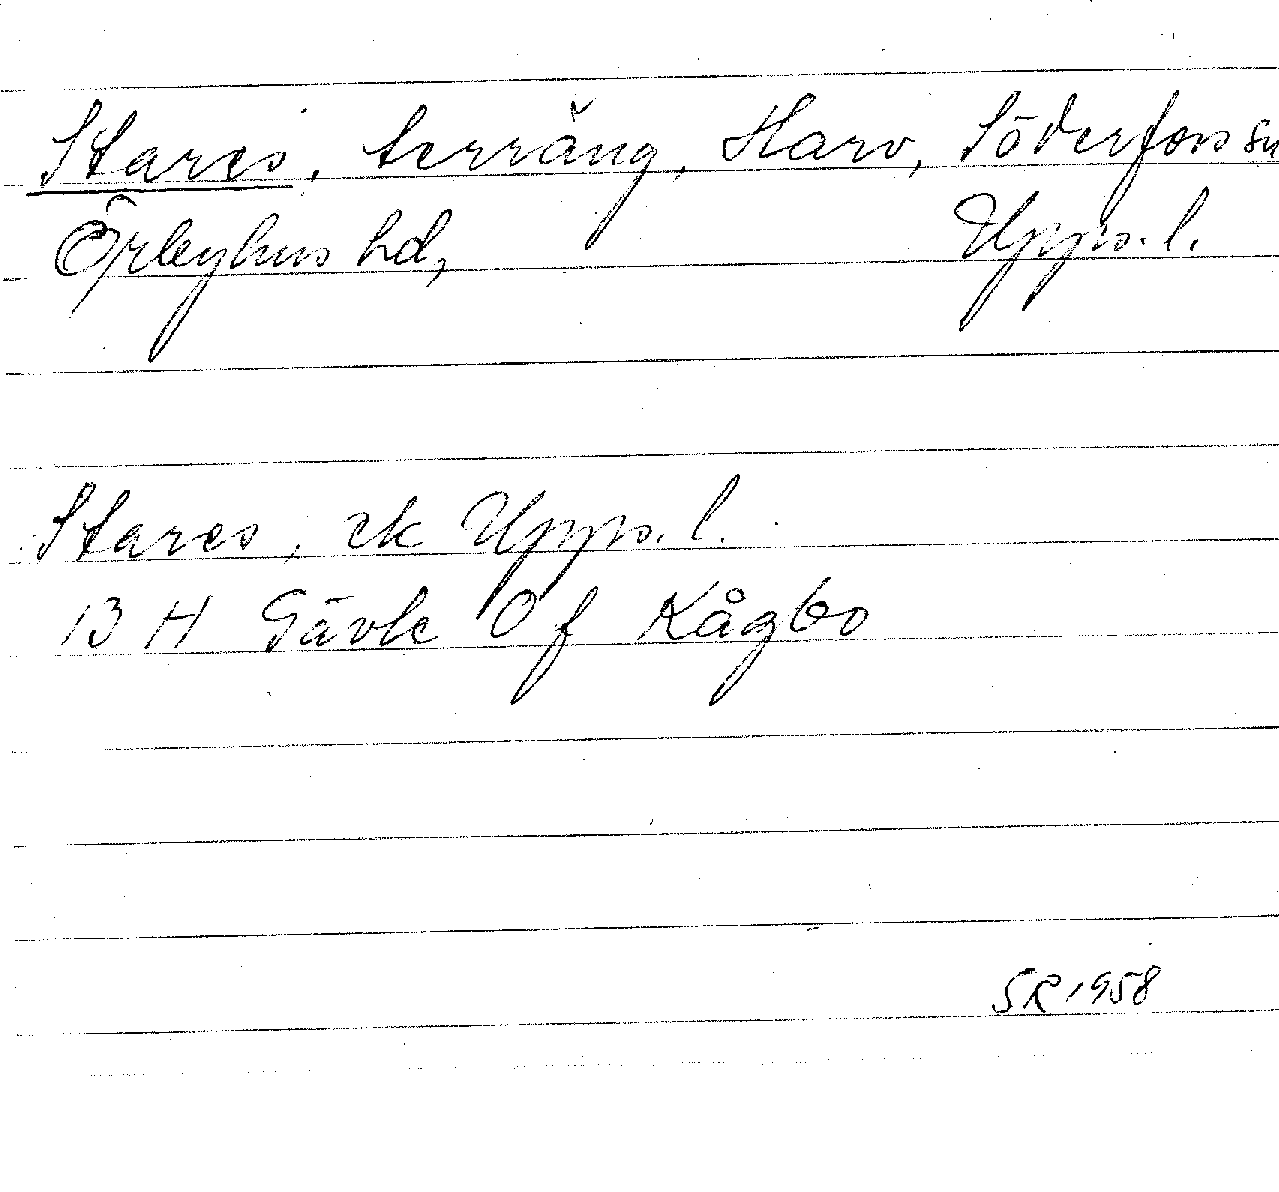 Stares, terräng, Harv, Söderfors sn
Örbyhus hd, Upps. l.
Stares, ek Upps. l.
13 H Gävle 0 f Kågbo
SR 1958